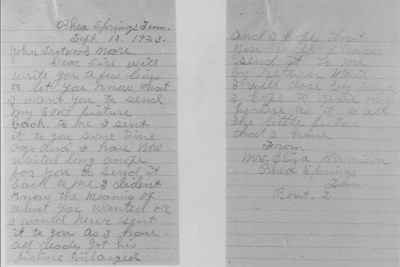 Rhea Springs Tenn.
Sept. 19. 1922.
John Trotwood Moore.
Dear Sire will
write you a few lines
to let you know that
I want you to send
my Son's picture
back to me I sent
it to you some time
ago and I have now
waited long anofe
for you to send it
back to me I dident
know the meaning of
what you wanted or
I would never sent
it to you as I have
all ready got his
picture Enlarged
and I hope that
you will please
send it to me
by return mail
I will close by saying
I hope to
picture as it is all
the little picture
that I have
From
Mrs. Eliza Harrison
Rhea Springs
Tenn
Rout. 2.